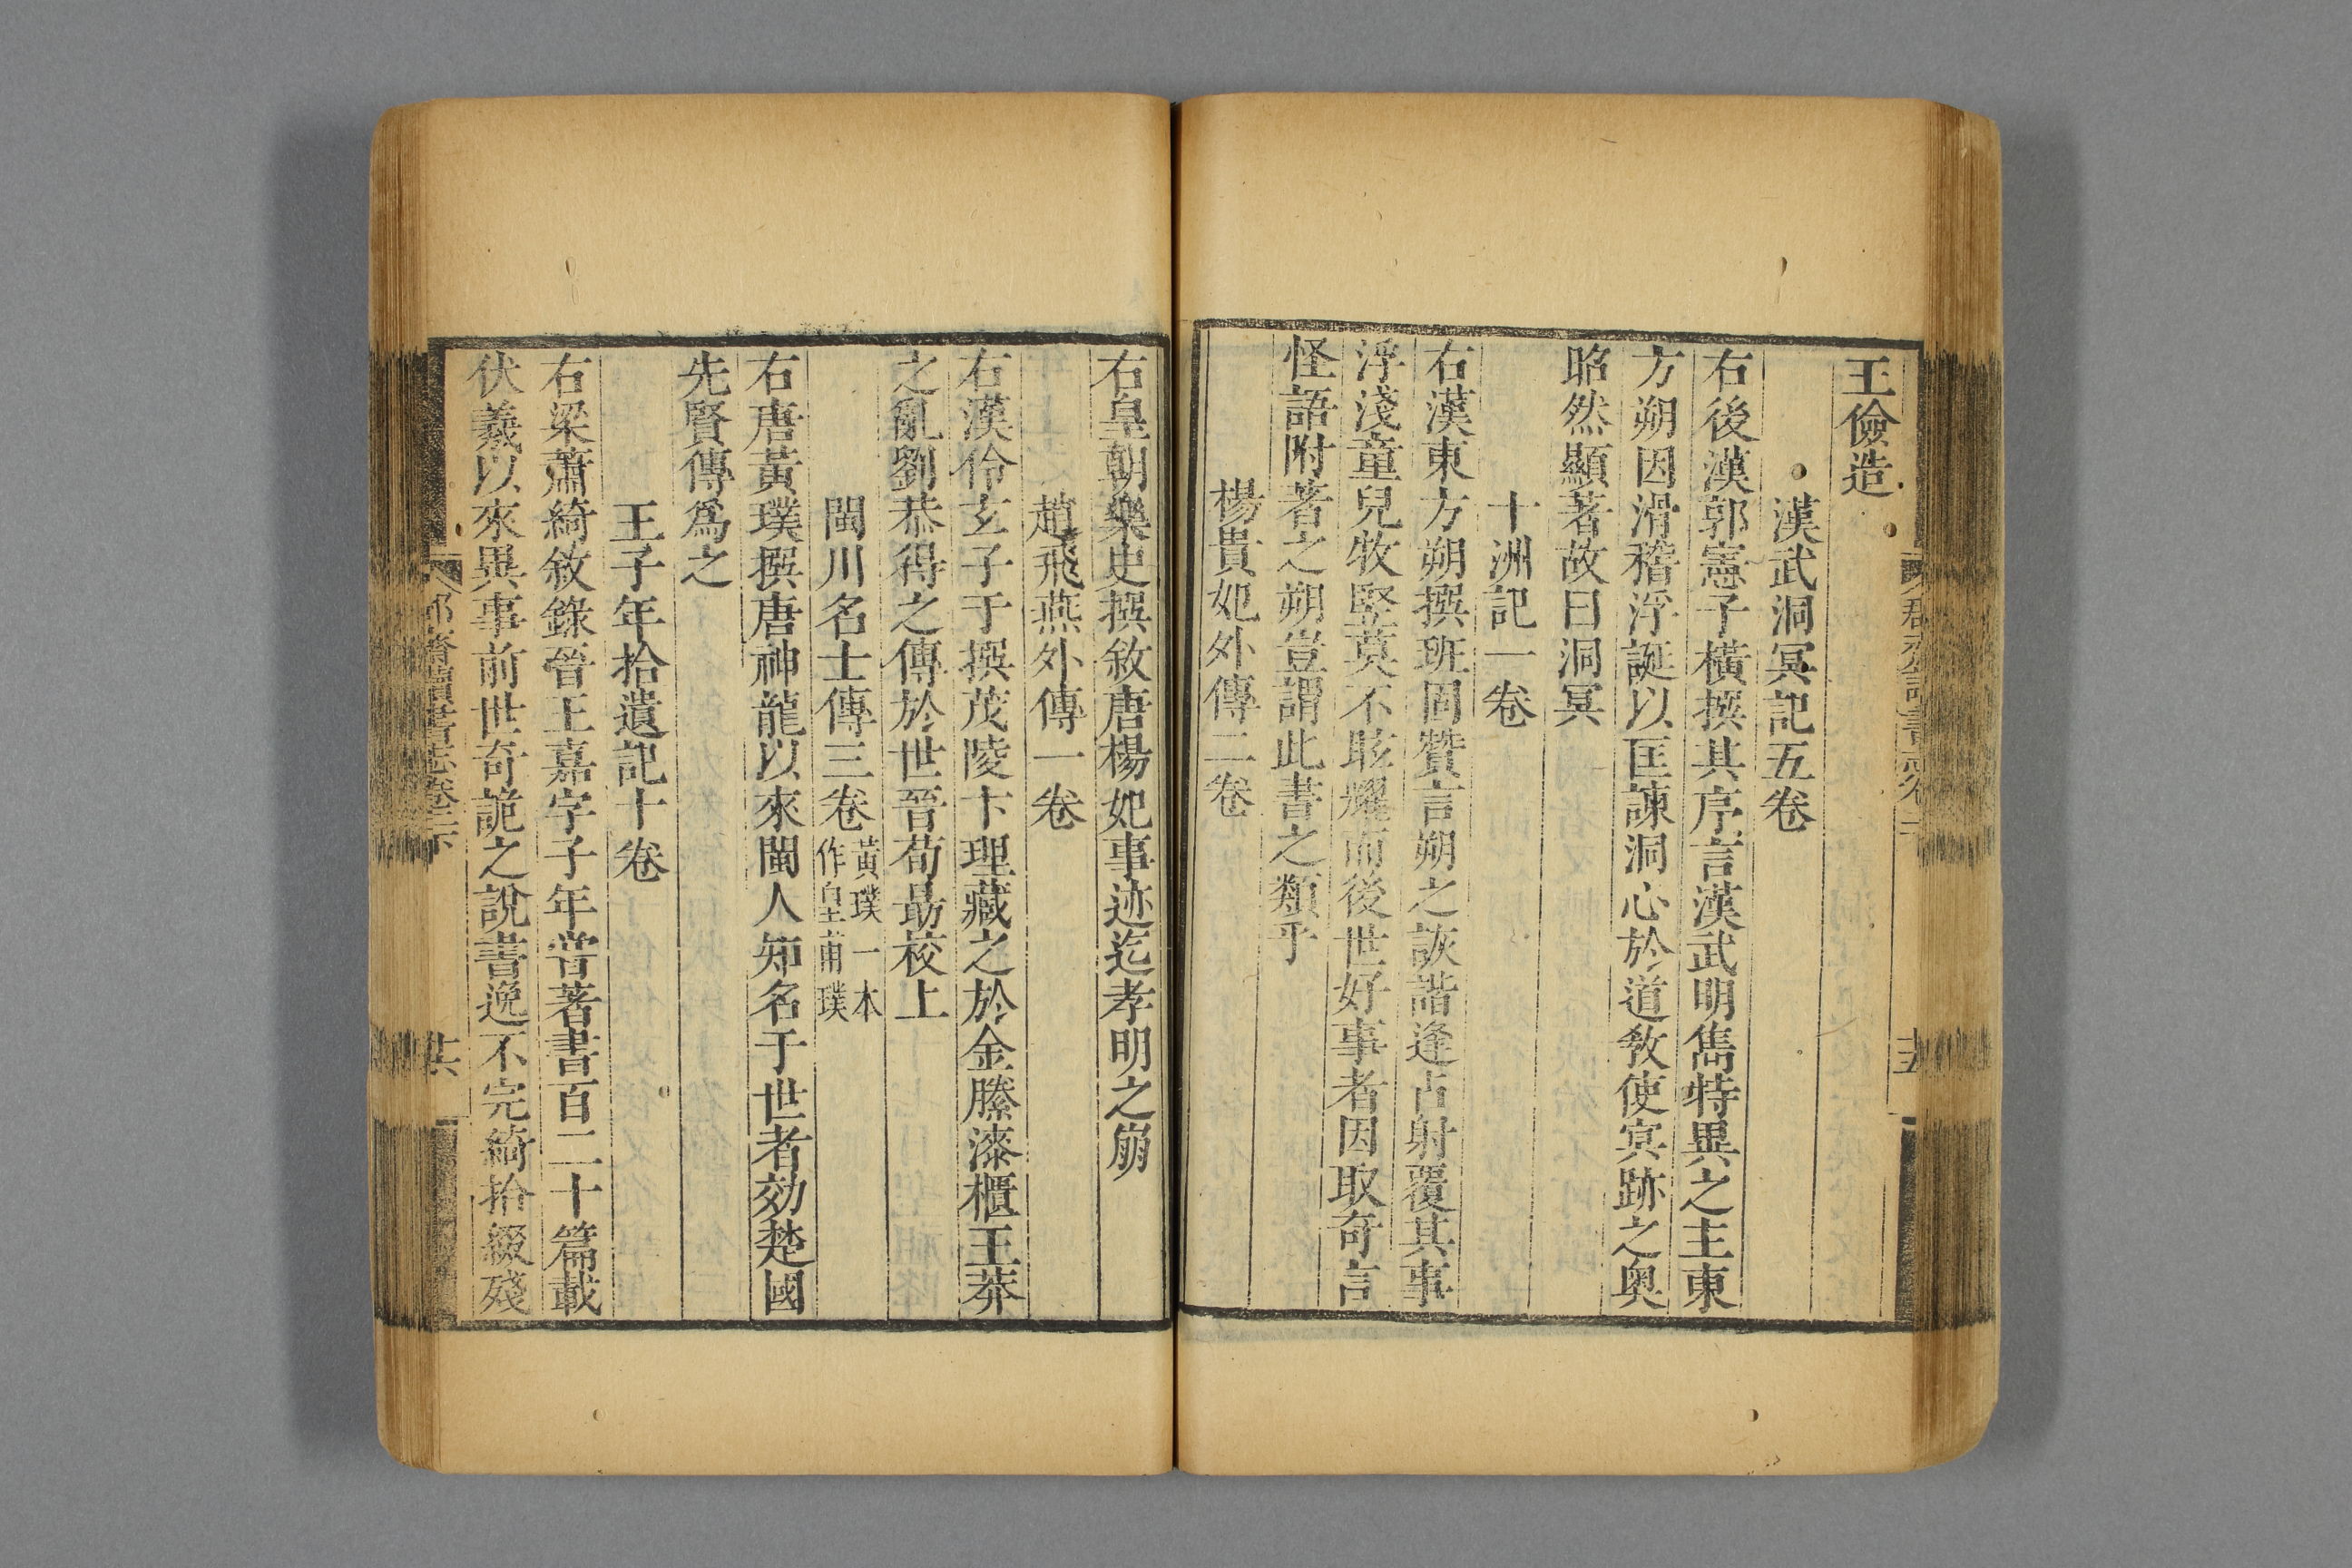 王儉造
漢武洞冥記五卷
右後漢郭憲子橫撰其序言漢武明雋特異之主東
方朔因滑稽浮誕以匡諫洞心於道敎使冥跡之奧
昭然顯著故曰洞冥
十洲記一卷
右漢東方朔撰班固贊言朔之詼諧逢占射覆其事
浮淺童兒牧豎莫不眩燿而後世好事者因取奇言
怪語附著之朔豈謂此書之類乎
楊貴妃外傳二卷
右皇朝樂史撰敘唐楊妃事迹迄孝明之崩
趙飛燕外傳一卷
右漢伶玄子于撰茂陵卞理藏之於金縢漆櫃王莽
之亂劉恭得之傳於世晉荀勗校上
閩川名士傳三卷黃璞一本作皇甫璞
右唐黃璞撰唐神龍以來閩人知名于世者効楚國
先賢傳爲之
王子年拾遺記十卷
右梁蕭綺敘錄晉王嘉字子年甞著書百二十篇載
伏羲以來異事前世奇詭之說書逸不完綺拾綴殘